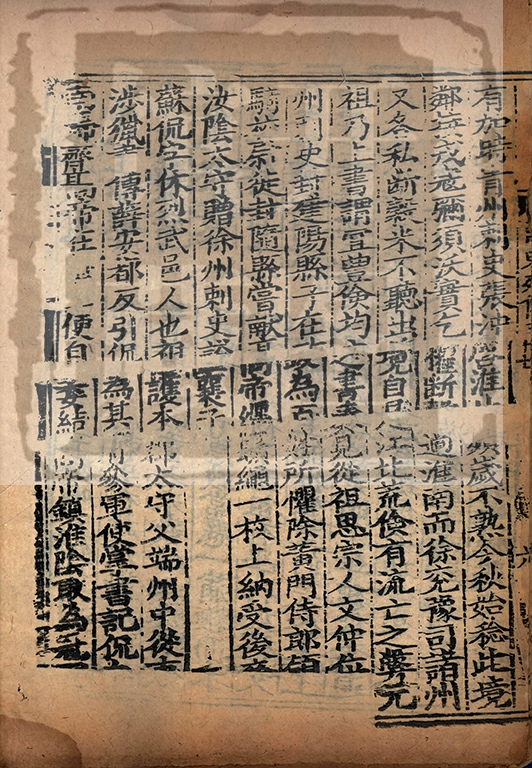 有加時青州刺史張沖啓淮 歲不熟今秋始稔此境
鄰接戎寇彌須沃實乞權斷 過淮南而徐兗豫司諸州
又各私斷穀米不聽出境自是江北荒儉有流亡之弊元
祖乃上書謂宜豐儉均之書奏見從祖思宗人文仲位
州刺史封建陽縣子在政為百姓所懼除黃門侍郎領
驍 徙封隨縣嘗獻高帝纏鬚繩一枚上納受後卒
汝陰太守贈徐州刺史諡襄子
蘇侃字休烈武邑人也祖護本郡太守父端州中從事
涉獵書傳薛安都反引侃為其府參軍使掌書記侃
高帝在 便自委結高帝鎮淮陰取為冠